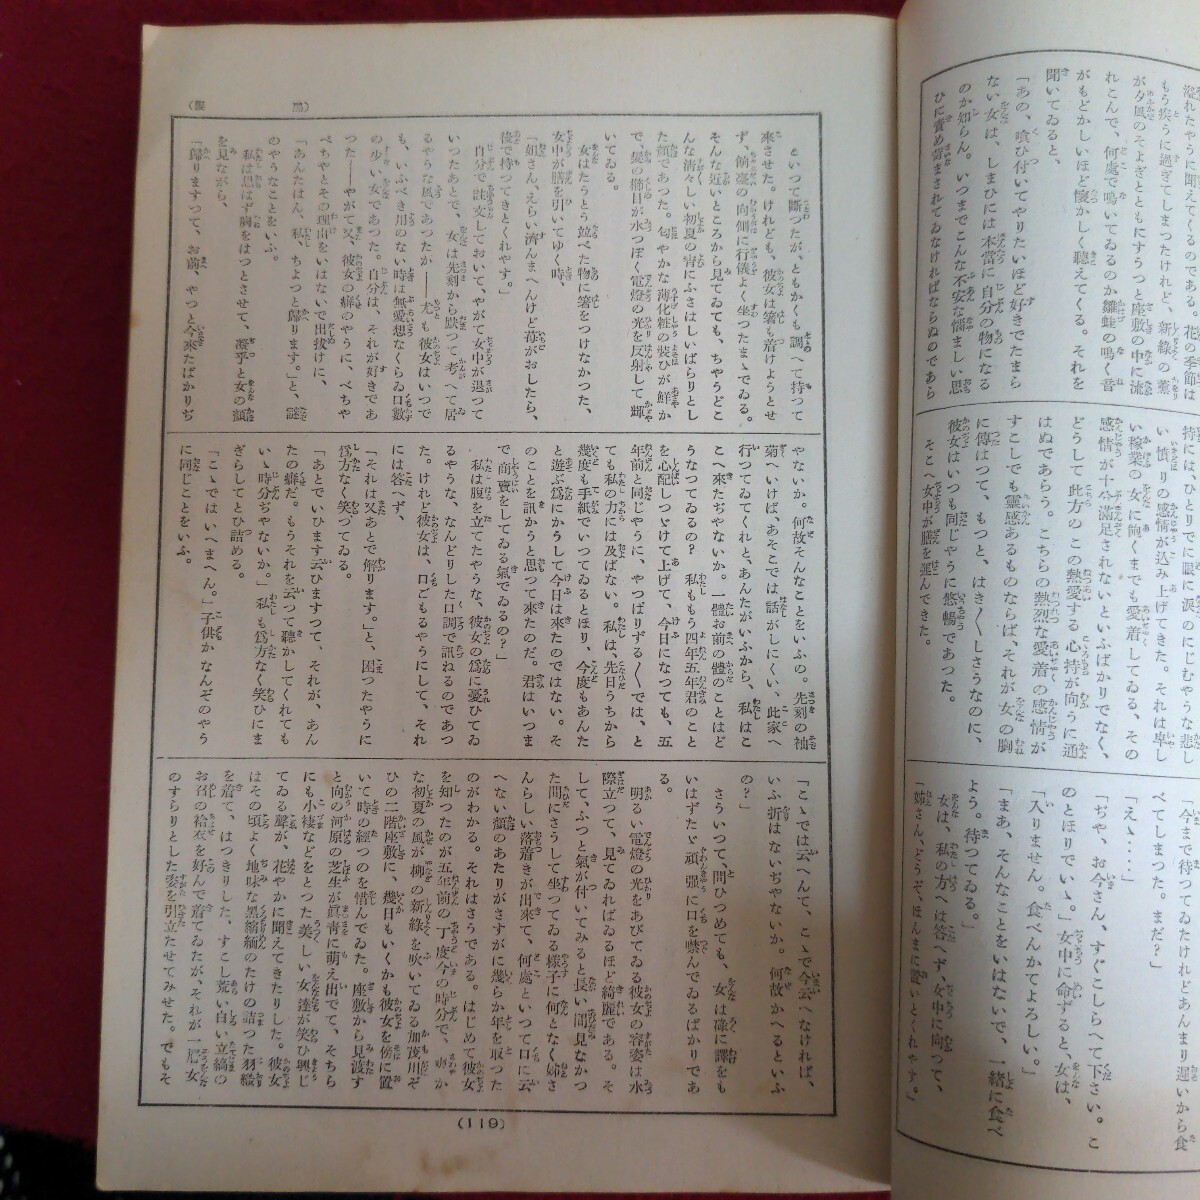 溢れたやうに聞えてくるのである。花の季節は
もう疾うに過ぎてしまつたけれど、新綠の薫
が夕風のそよぎとともにすうつと座敷の中に流
れこんで、何處で鳴いてゐるのか雛蛙の鳴く音
がもどかしいほど懷かしく聽えてくる。それを
聞いてゐると、
「あの、喰ひ付いてやりたいほど好きでたまら
ない女は、しまひには本當に自分の物になる
のか知らん。いつまでこんな不安な惱ましい思
ひに責め苛まされてゐなければならぬのであら
持には、ひとりでに眼に涙のにじむやうな悲し
い憤りの感情が込み上げてきた。それは卑し
い稼業の女に飽くまでも愛着してゐる、その
感情が十分滿足されないといふばかりでなく、
どうして此方のこの熱愛する心持が向うに通
はぬであらう。こちらの熱烈な愛着の感情が
すこしでも靈感あるものならば、それが女の胸
に傳はつて、もつと、はき〱しさうなのに、
彼女はいつも同じやうに悠暢であつた。
そこへ女中が膳を運んできた。
「今まで待つてゐたけれどあんまり遲いから食
べてしまつた。まだ？」
「えゝ‥‥」
「ぢや、お今さん、すぐこしらへて下さい。こ
のとほりでいゝ。」女中に命ずると、女は、
「入りません。食べんかてよろしい。」
「まあ、そんなことをいはないで、一緖に食べ
よう。待つてゐる。」
女は、私の方へは答へず、女中に向つて、
「姉さん、どうぞ、ほんまに置いとくれやす。」
（髮　黑）
といつて斷つたが、ともかくも調へて持つて
來させた。けれども、彼女は箸も着けようとせ
ず、餉臺の向側に行儀よく坐つたまゝでゐる。
そんな近いところから見てゐても、ちやうどこ
んな淸々しい初夏の宵にふさはしいばらりとし
た顏であつた。匂やかな薄化粧の裝ひが鮮か
で、髮の櫛目が水つぽく電燈の光を反射して輝
いてゐる。
女はたうとう並べた物に箸をつけなかつた、
女中が膳を引いてゆく時、
「姐さん、えらい濟んまへんけど苺がおしたら、
後で持つてきとくれやす。」
自分で註文しておいて、やがて女中が退つて
いつたあとで、女は先刻から默つて考へて居
るやうな風であつたか――尤も彼女はいつで
も、いふべき用のない時は無愛想なくらゐ口數
の少い女であつた。自分は、それが好きであ
つた――やがて又、彼女の癖のやうに、べちや
べちやとその理由をいはないで出拔けに、
「あんたはん、私、ちよつと歸ります。」と、謎
のやうなことをいふ。
私は思はず胸をはつとさせて、凝乎と女の顏
を見ながら、
「歸りますつて、お前、やつと今來たばかりぢ
やないか。何故そんなことをいふの。先刻の袖
菊へいけば、あそこでは話がしにくい、此家へ
行つてゐてくれと、あんたがいふから、私はこ
こへ來たぢやないか。一體お前の體のことはど
うなつてゐるの？　私ももう四年五年君のこと
を心配しつゞけて上げて、今日になつても、五
年前と同じやうに、やつぱりずる〱では、と
ても私の力には及ばない。私は、先日うちから
幾度も手紙でいつてゐるとほり、今度もあんた
と遊ぶ爲にかうして今日は來たのではない。そ
のことを訊かうと思つて來たのだ。君はいつま
で商賣をしてゐる氣でゐるの？」
私は腹を立てたやうな、彼女の爲に憂ひてゐ
るやうな、なんどりした口調で訊ねるのであつ
た。けれど彼女は、口ごもるやうにして、それ
には答へず、
「それは又あとで解ります。」と、困つたやうに
爲方なく笑つてゐる。
「あとでいひます云ひますつて、それが、あん
たの癖だ。もうそれを云つて聽かしてくれても
いゝ時分ぢやないか。」私も爲方なく笑ひにま
ぎらしてとひ詰める。
「こゝではいへまへん。」子供かなんぞのやう
に同じことをいふ。
「こゝでは云へんて、こゝで今云へなければ、
いふ折はないぢやないか。何故かへるといふ
の？」
さういつて、問ひつめても、女は碌に譯をも
いはずたゞ頑强に口を噤んでゐるばかりであ
る。
明るい電燈の光をあびてゐる彼女の容姿は水
際立つて、見てゐればゐるほど綺麗である。そ
して、ふつと氣が付いてみると長い間見なかつ
た間にさうして坐つてゐる樣子に何となく姉さ
んらしい落着きが出來て、何處といつて口に云
へない顏のあたりがさすが幾らか年を取つた
のがわかる。それはさうである。はじめて彼女
を知つたのが五年前の丁度今の時分で、爽か
な初夏の風が柳の新綠を吹いてゐる加茂川ぞ
ひの二階座敷に、幾日もいくかも彼女を傍に置
いて時の經つのを惜んでゐた。座敷から見渡す
と向の河原の芝生が眞靑に萌え出でて、そちら
にも小褄などをとつた美しい女達が笑ひ興じ
てゐる聲が、花やかに聞えてきたりした。彼女
はその頃よく地味な黑縮緬のたけの詰つた羽織
を着て、はつきりした、すこし荒い白い立縞の
お召の袷衣を好んで着てゐたが、それが一層女
のすらりとした姿を引立たせてみせた。でもそ
（119）